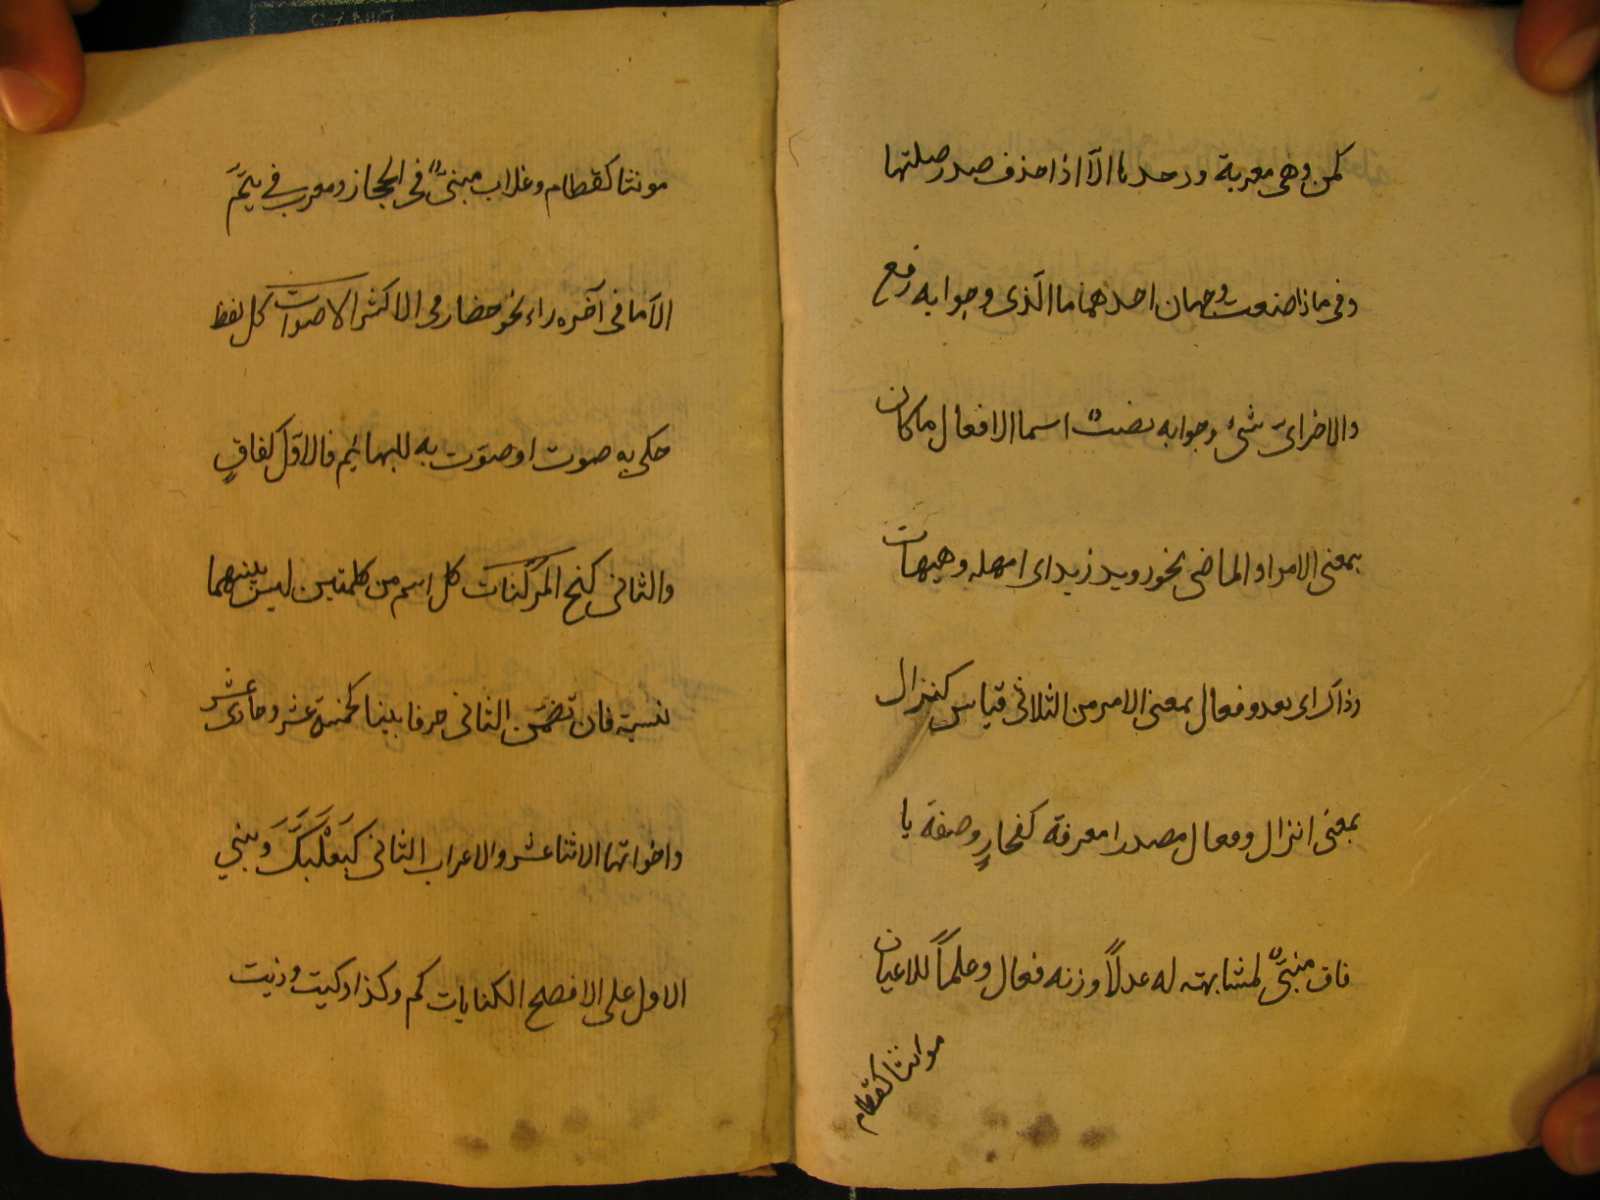 كمن وهى معربة وحدها الّا اذا حذف صدر صلتها
وفى ماذا صنعت وجهان احدهما ما الّذى وجوابه رفع
والاخر اىّ شئ وجوابه نصبٌ اسما الافعال ما كان
بمعنى الامر او الماضى نحو رويد زيدا اى امهله وهيهات
ذاك اى بعد وفعال بمعنى الامر من الثلاثى قياس كنزال
بمعنى انزل وفعال مصدرا معرفة كفجارِ وصفة يا
فاق مبنىٌّ لمشابهته له عدلاً وزنه فعال وعلماً للاعيان
موانثا كقطام
مونثا كقطام وغلاب مبنىٌّ فى الحجاز ومعرب فى تيمّ
الّا ما فى آخره راء نحو حضار فى الاكثر الاصوات كل لفظ
حكى به صوت او صوّت به للبهائم فالاوّل كغاقِ
والثانى كنخ المركبات كل اسم من كلمتين ليس بينهما
نسبة فان تضمّن الثانى حرفا بينا كخمسة عشر وحادى عشر
واخواتها الا اثنا عشر والا اعراب الثانى كبَعْلَبَكَّ وَبني
الاول على الافصح الكنايات كم وكذا وكيت وذيت